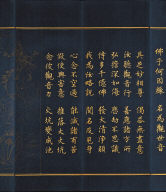 佛子何因緣 名為觀世音
具足妙相尊 偈答無盡意
汝聽觀音行 善應諸方所
弘誓深如海 歷劫不思議
侍多千億佛 發大清淨願
我為汝略說 聞名及見身
心念不空過 能滅諸有苦
假使興害意 推落大火坑
念彼觀音力 火坑變成池